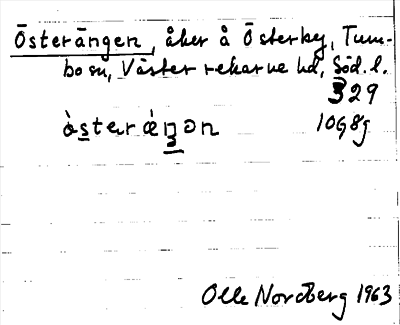 Österängen, åker å Österby, Tum-
bo sn, Väster rekarne hd, Söd. l.
329
ò̀steráŋən 1098g
Olle Nordberg 1963